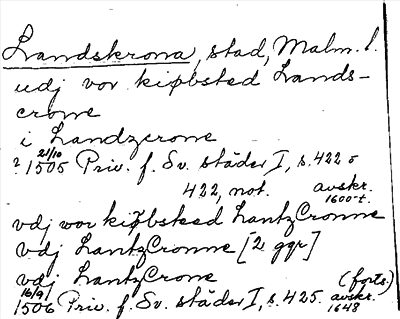 Landskrona, stad, Malm. l.
udj vor kiøbsted Lands-
crone
i Landzcrone
? 21/10 1505 Priv. f. Sv. städer I, s. 422 o
422, not. avskr. 1600-t.
vdj wor kiøbsted LantzCronne
vdj LantzCronne [2 ggr]
vdj LantzCrone (forts.)
16/9 1506 Priv. f. Sv. städer I, s. 425. avskr. 1648